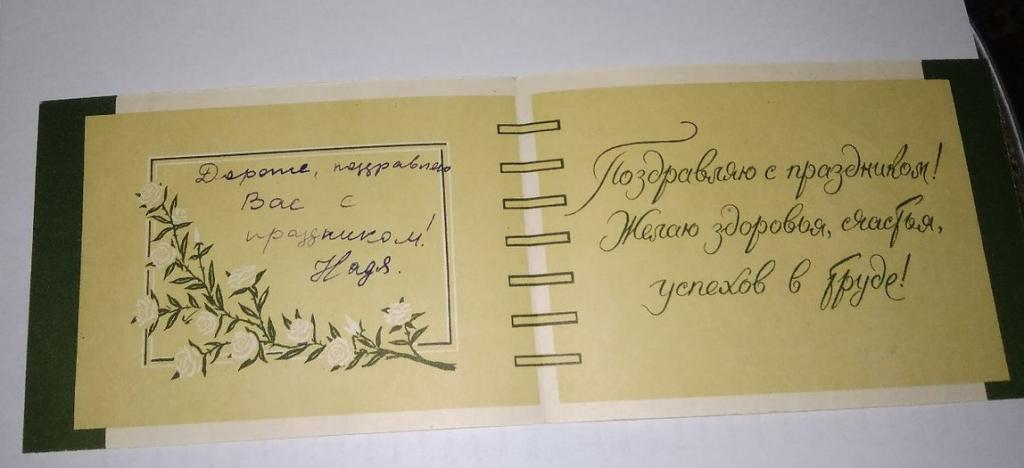 Дорогие, поздравляю
Вас с
праздником!
Надя.
Поздравляю с праздником!
Желаю здоровья, счастья,
успехов в труде!